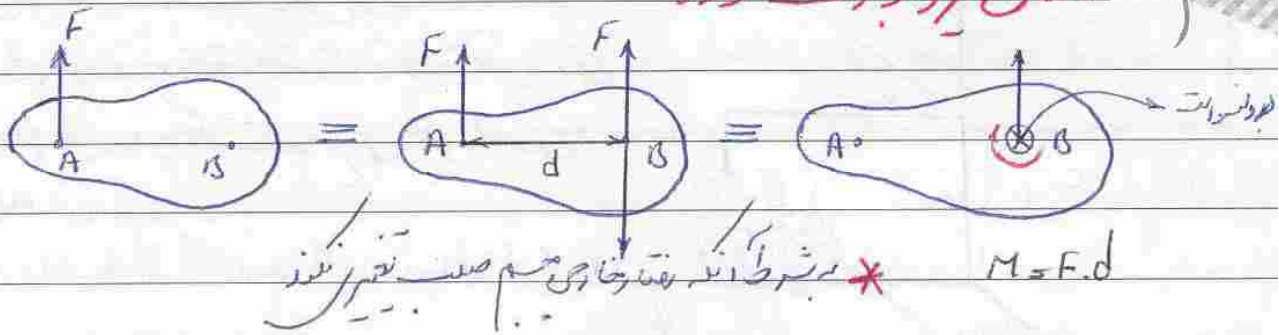 F F F
A B = A d B = A B
* به شرط آنکه رفتار خارجی جسم صلب تغییر نکند M = F.d